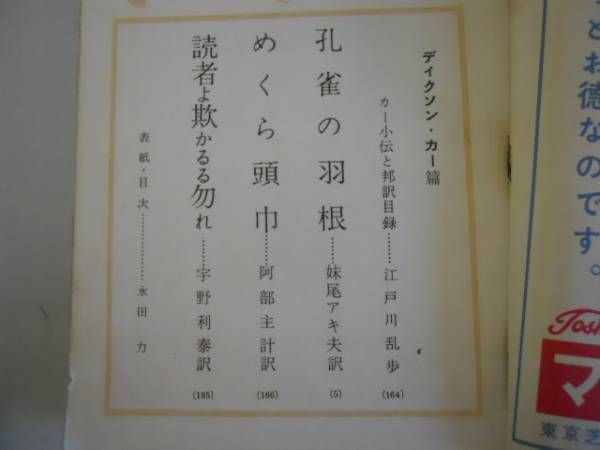 ディクソン・カー篇
カー小伝と邦訳目録………江戸川乱歩 (164)
孔雀の羽根………妹尾アキ夫訳 (5)
めくら頭巾………阿部主計訳 (166)
読者よ欺かるる勿れ………宇野利泰訳 (185)
表紙・目次………………永田力
とお徳なのです。
Tosh
マ
東京芝